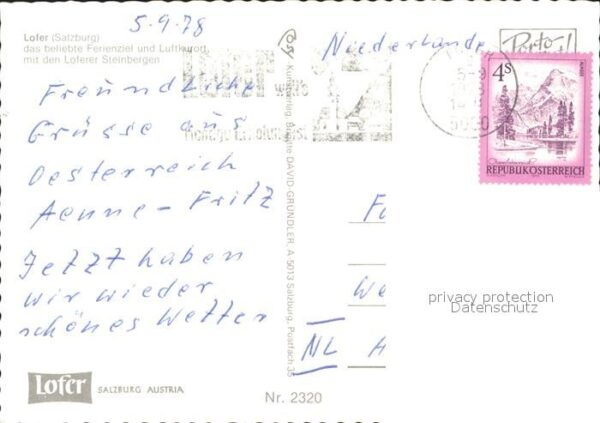 5.9.78
Lofer (Salzburg)
das beliebte Ferienziel und Luftkurort
mit den Loferer Steinbergen
Freundliche
Grüsse aus
Oesterreich
Aenne-Fritz
Jetzt haben
wir wieder
schönes Wetter
Lofer SALZBURG AUSTRIA
Kunstverlag, Brigitte DAVID-GRÜNDLER, A-5013 Salzburg, Postfach 35
Nr. 2320
Niederlande
Porto!
4S
REPUBLIK ÖSTERREICH
Fa
We
NL
privacy protection
Datenschutz